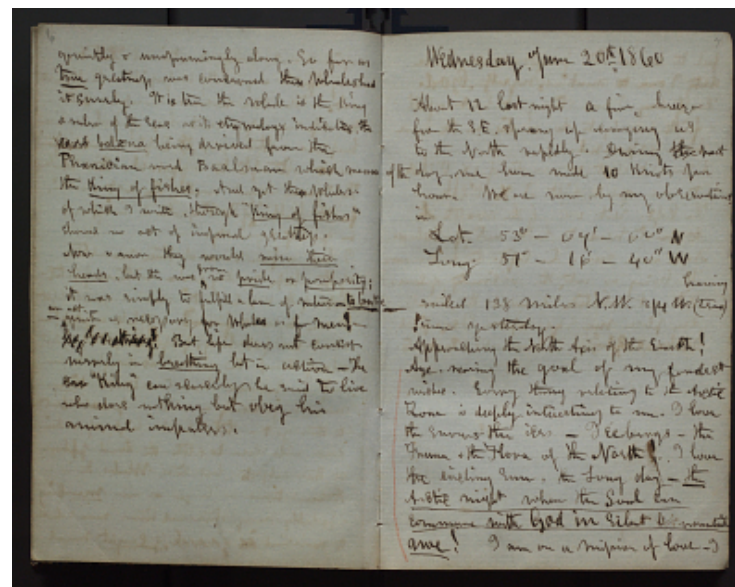 quietly & unassumingly along. So far as
true greatness was concerned these Whales had
it surely. It is true the whale is the King
& ruler of the Seas as its etymology indicates the
word balæna being derived from the
Phœnician word Baalnam which means
the King of fishes. And yet these Whales
of which I write, though "King of fishes"
showed no act of imperial greatness.
Now & anon they would raise their
heads, but this was from no pride or pomposity;
it was simply to fulfil a law of nature – to breathe
– an act
quite as necessary for Whales as for men!
But life does not consist
merely in breathing but in action – The
"King" can scarcely be said to live
who does nothing but obey his
animal impulses.
Wednesday June 20th 1860
About 12 last night a fine breeze
from the S.E. sprang up carrying us
to the North rapidly. During the most
of the day, we have made 10 Knots per
hour. We are now by my observations
in
Lat. 53° – 04' – 00" N
Long. 51° – 16' – 40" W
having
sailed 138 miles N.W. 3/4 W. (true)
since yesterday.
Approaching the North Axis of the Earth!
Aye, nearing the goal of my fondest
wishes. Every thing relating to the Arctic
Zone is deeply interesting to me. I love
the Snows – the ices – Icebergs – the
Fauna & the Flora of the North! I love
the circling Sun, the long day – the
Arctic night when the Soul can
commune with God in silent & reverential
awe! I am on a mission of love – I